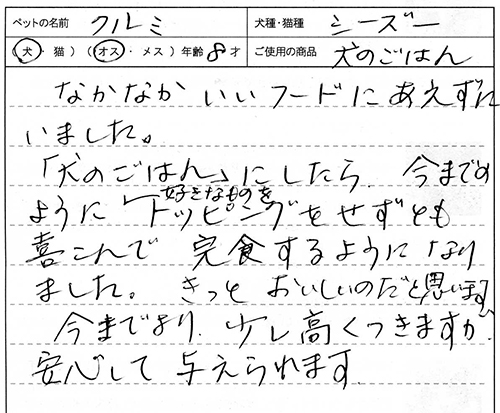 ペットの名前 クルミ 犬種・猫種 シーズー
(犬・猫)(オス・メス)年齢8才 ご使用の商品 犬のごはん
なかなかいいフードにあえずに
いました。
「犬のごはん」にしたら、今までの
ように好きなものをトッピングをせずとも
喜こんで完食するようになり
ました。きっとおいしいのだと思います。
今までより、少し高くつきますが、
安心して与えられます。